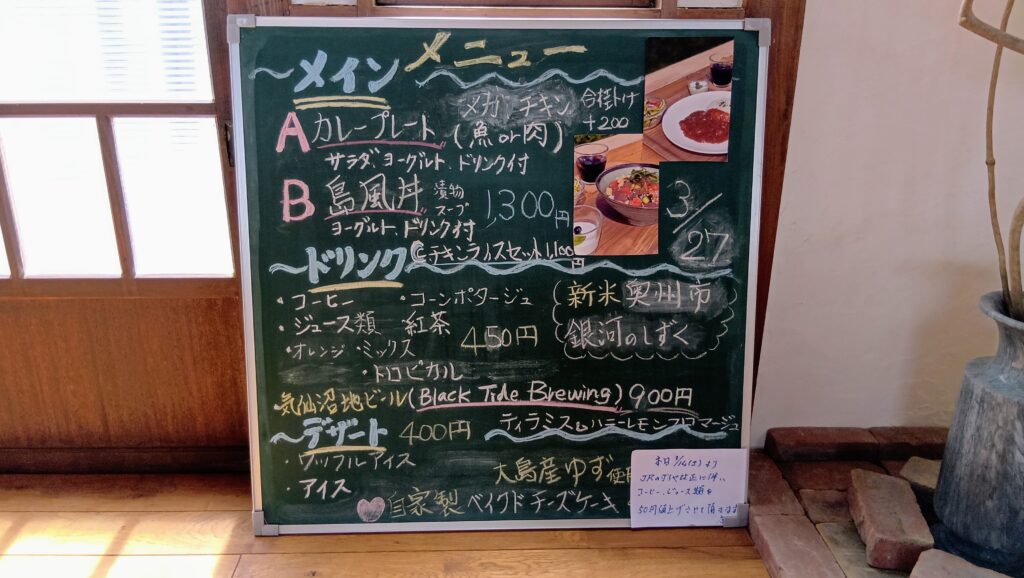 メニュー
メイン
メガ チキン 合掛け
+200
A カレープレート (魚or肉)
サラダ、ヨーグルト、ドリンク付
B 島風丼 漬物 スープ 1,300円
ヨーグルト、ドリンク付
Cチキンライスセット 1,100円
3/27
ドリンク
・コーヒー ・コーンポタージュ
・ジュース類 紅茶
450円
・オレンジ・ミックス
・トロピカル
新米 奥州市
銀河のしずく
気仙沼地ビール(Black Tide Brewing) 900円
デザート 400円
ティラミス ハニーレモンフロマージュ
・ワッフルアイス
・アイス
大島産ゆず使用
自家製 ベイクドチーズケーキ
本日
コーヒー、ジュース類を
50円値上げさせて頂きます